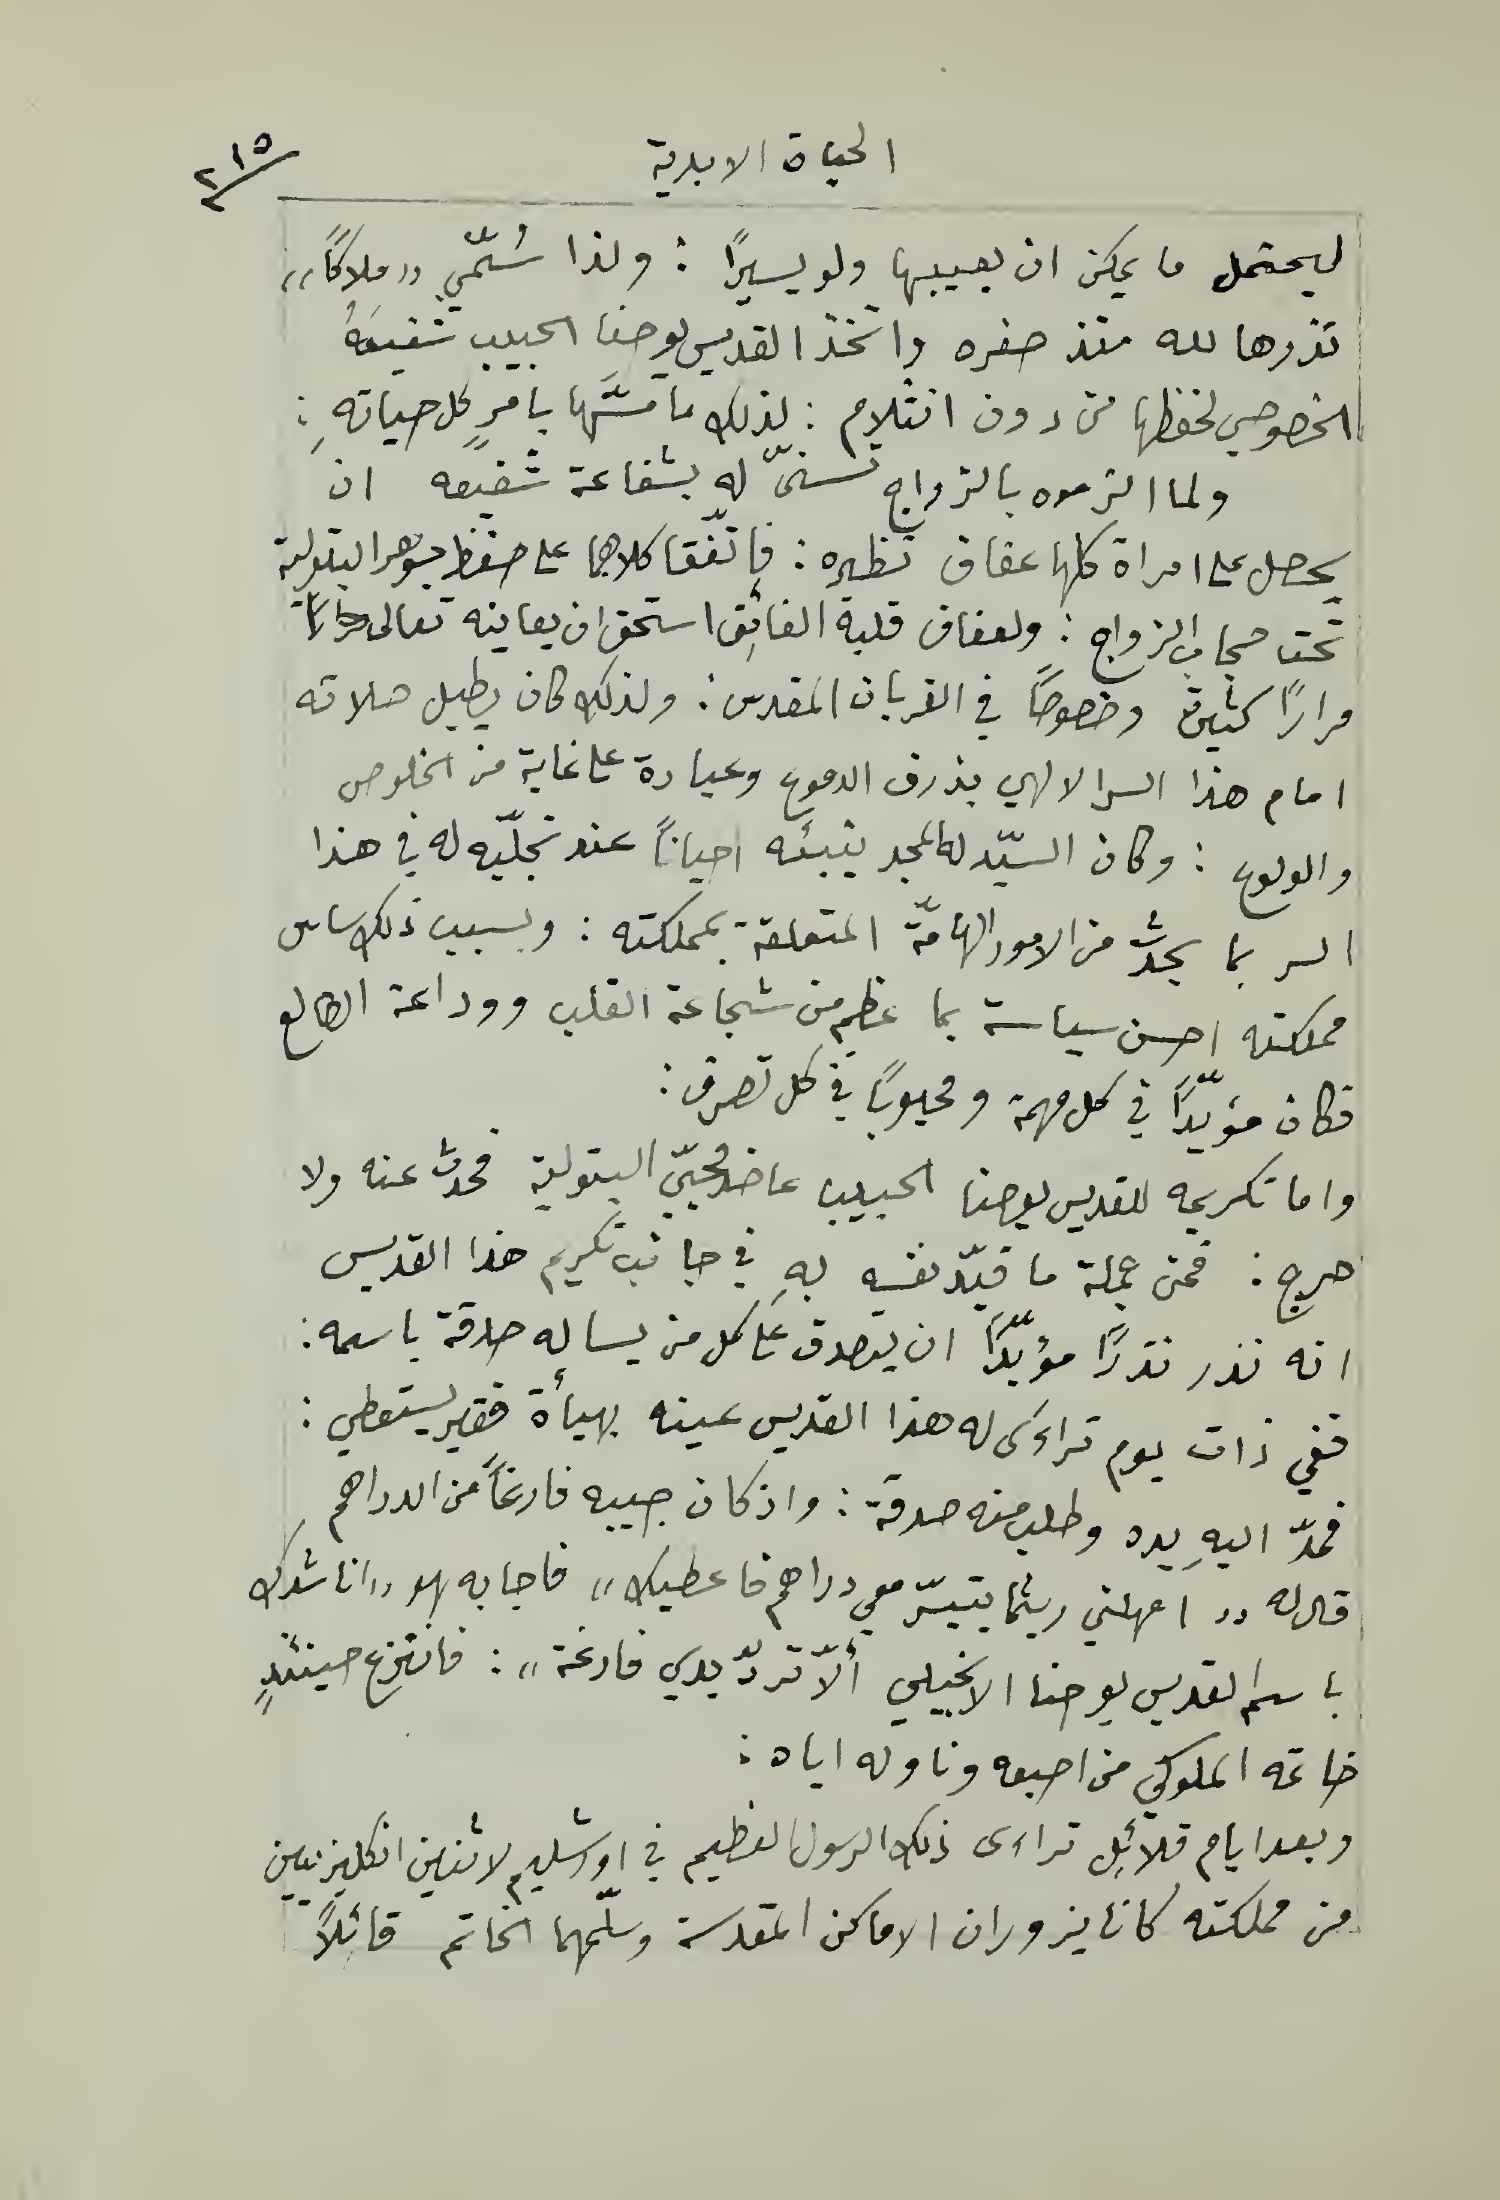 الحياة الابدية
٢١٥
٢
ليحتمل ما يمكن ان يعيبها ولو يسيرًا : ولذا سُمّي ,, ملاكًا ,,
نذرها لله منذ صغره واتخذ القديس يوحنا الحبيب شفيعَهُ
الخصوصي لحفظها من دون انثلام : لذلك ما مسَّها بامرٍ كل حياتهِ :
ولما الزموه بالزواج تسنىّ له بشفاعة شفيعه ان
يحصل على امراة كلها عفاف نظيره : فاتّفقا كلاهما على حفظ جوهر البتولية
تحت حجاب الزواج : ولعفاف قلبه الفائق استحق ان يعاينه تعالى
مرارًا كثيرة وخصوصًا في القربان المقدس : ولذلك كان يطيل صلاته
امام هذا السر الالهي بذرف الدموع وعبادة على غاية من الخلوص
والولوع : وكان السيّد له المجد ينبئه احيانًا عند تجلّيه له في هذا
السر بما يحدث من الامور الهامّة المتعلقة بمملكته : وبسبب ذلك ساس
مملكته احسن سياسة بما عظم من شجاعة القلب ووداعة الطالع
فكان مؤيّدًا في كل مهمة ومحبوبًا في كل تصرف :
واما تكريمه للقديس يوحنا الحبيب عاضد محبّي البتولية فحدث عنه ولا
حرج : فمن جملة ما قيّد نفسه بهِ في جانب تكريم هذا القديس
انه نذر نذرًا مؤبّدًا ان يتصدق على كل من يساله صدقة باسمه :
ففي ذات يوم تراءى له هذا القديس عينه بهيأة فقير يستعطي :
فمدّ اليهِ يده وطلب منه صدقة : واذ كان جيبه فارغاً من الدراهم
قال له ,, امهلني ريثما يتيسّر معي دراهم فاعطيك ,, فاجابه هو ,, اناشدك
باسم القديس يوحنا الانجيلي ألاّ تردّ يدي فارغة ,, : فانتزع حينئذٍ
خاتمه الملوكي من اصبعه وناوله اياه :
وبعد ايام قلائل تراءى ذلك الرسول العظيم في اورشليم لاثنين انكليزيين
من مملكته كانا يزوران الاماكن المقدسة وسلّمهما الخاتم قائلاً